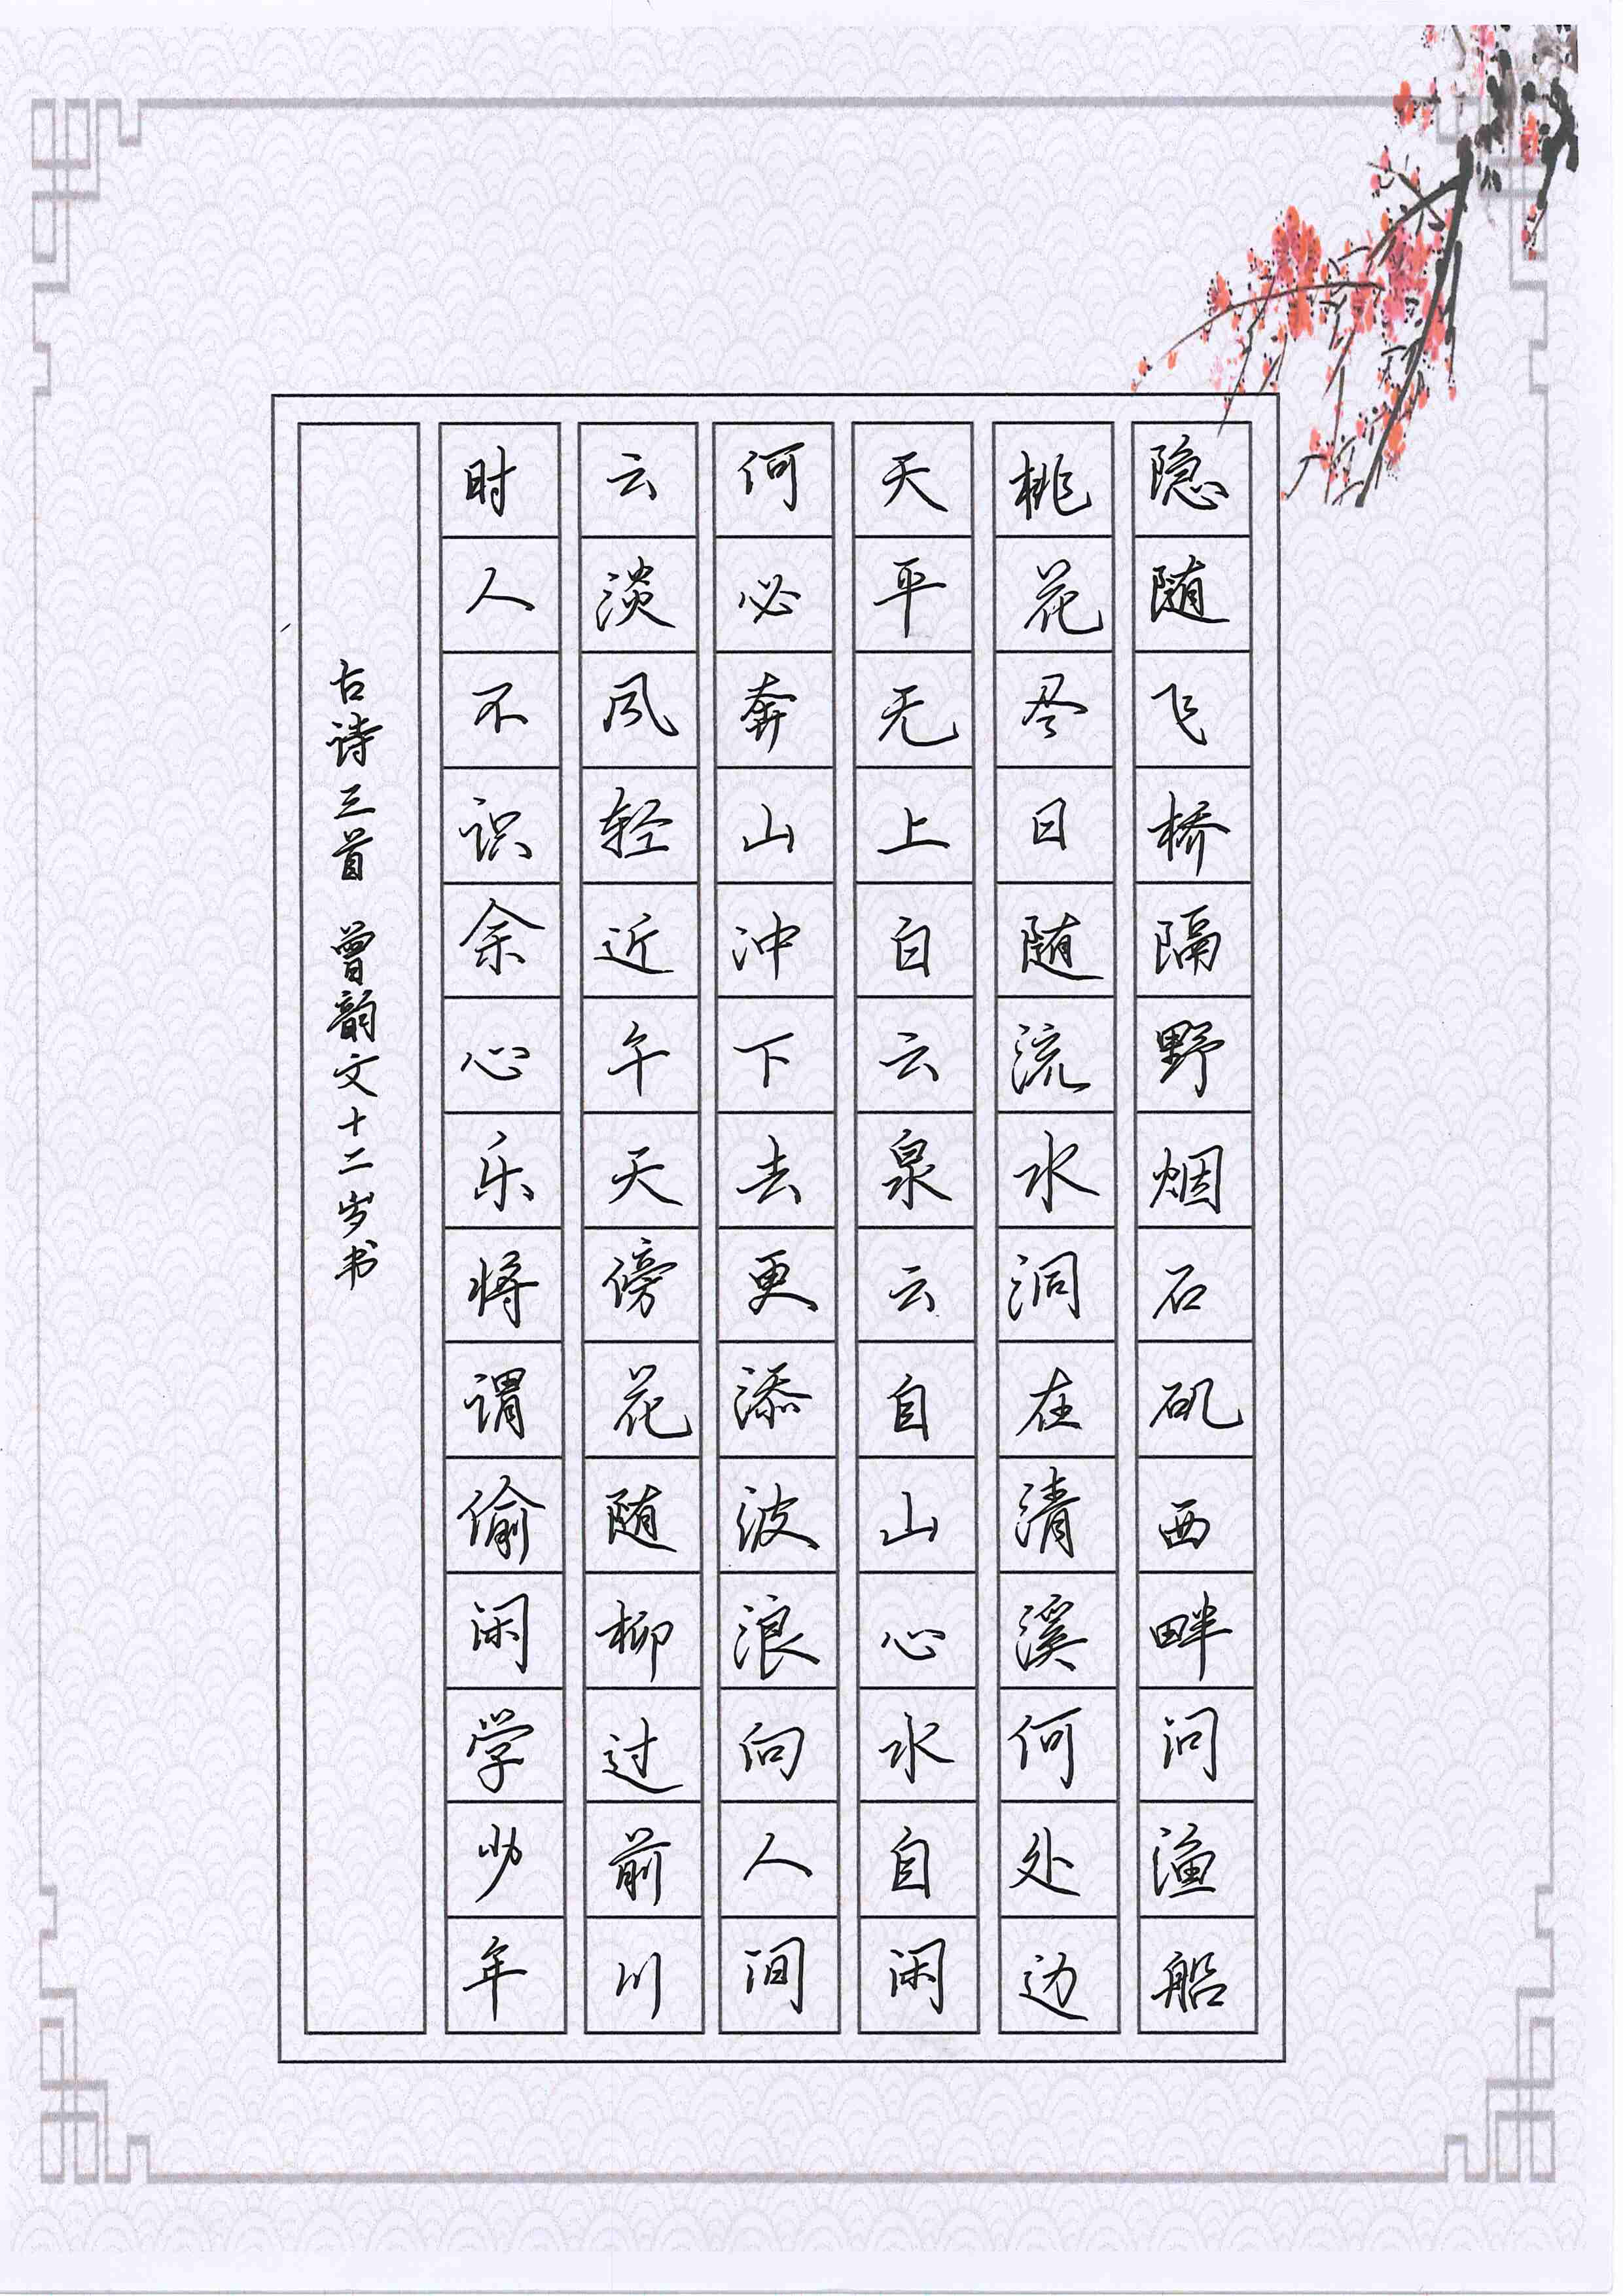 隐随飞桥隔野烟石矶西畔问渔船
桃花尽日随流水洞在清溪何处边
天平无上白云泉云自山心水自闲
何必奔山冲下去更添波浪向人间
云淡风轻近午天傍花随柳过前川
时人不识余心乐将谓偷闲学少年
古诗三首 曾韵文十二岁书